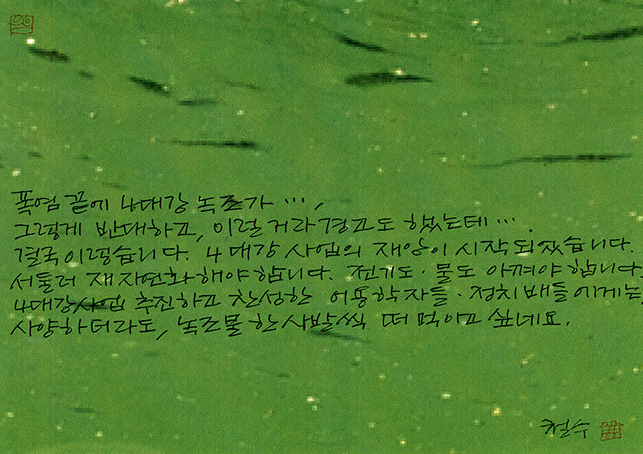 폭염 끝에 4대강 녹조가 …,
그렇게 반대하고, 이럴거라 경고도 했는데 ….
결국 이렇습니다. 4대강 사업의 재앙이 시작되었습니다.
서둘러 재자연화해야 합니다. 전기도·물도 아껴야 합니다.
4대강사업 추진하고 찬성한 어용학자들·정치배들에게는,
사양하더라도, 녹조물 한사발씩 떠 먹이고 싶네요.
철수